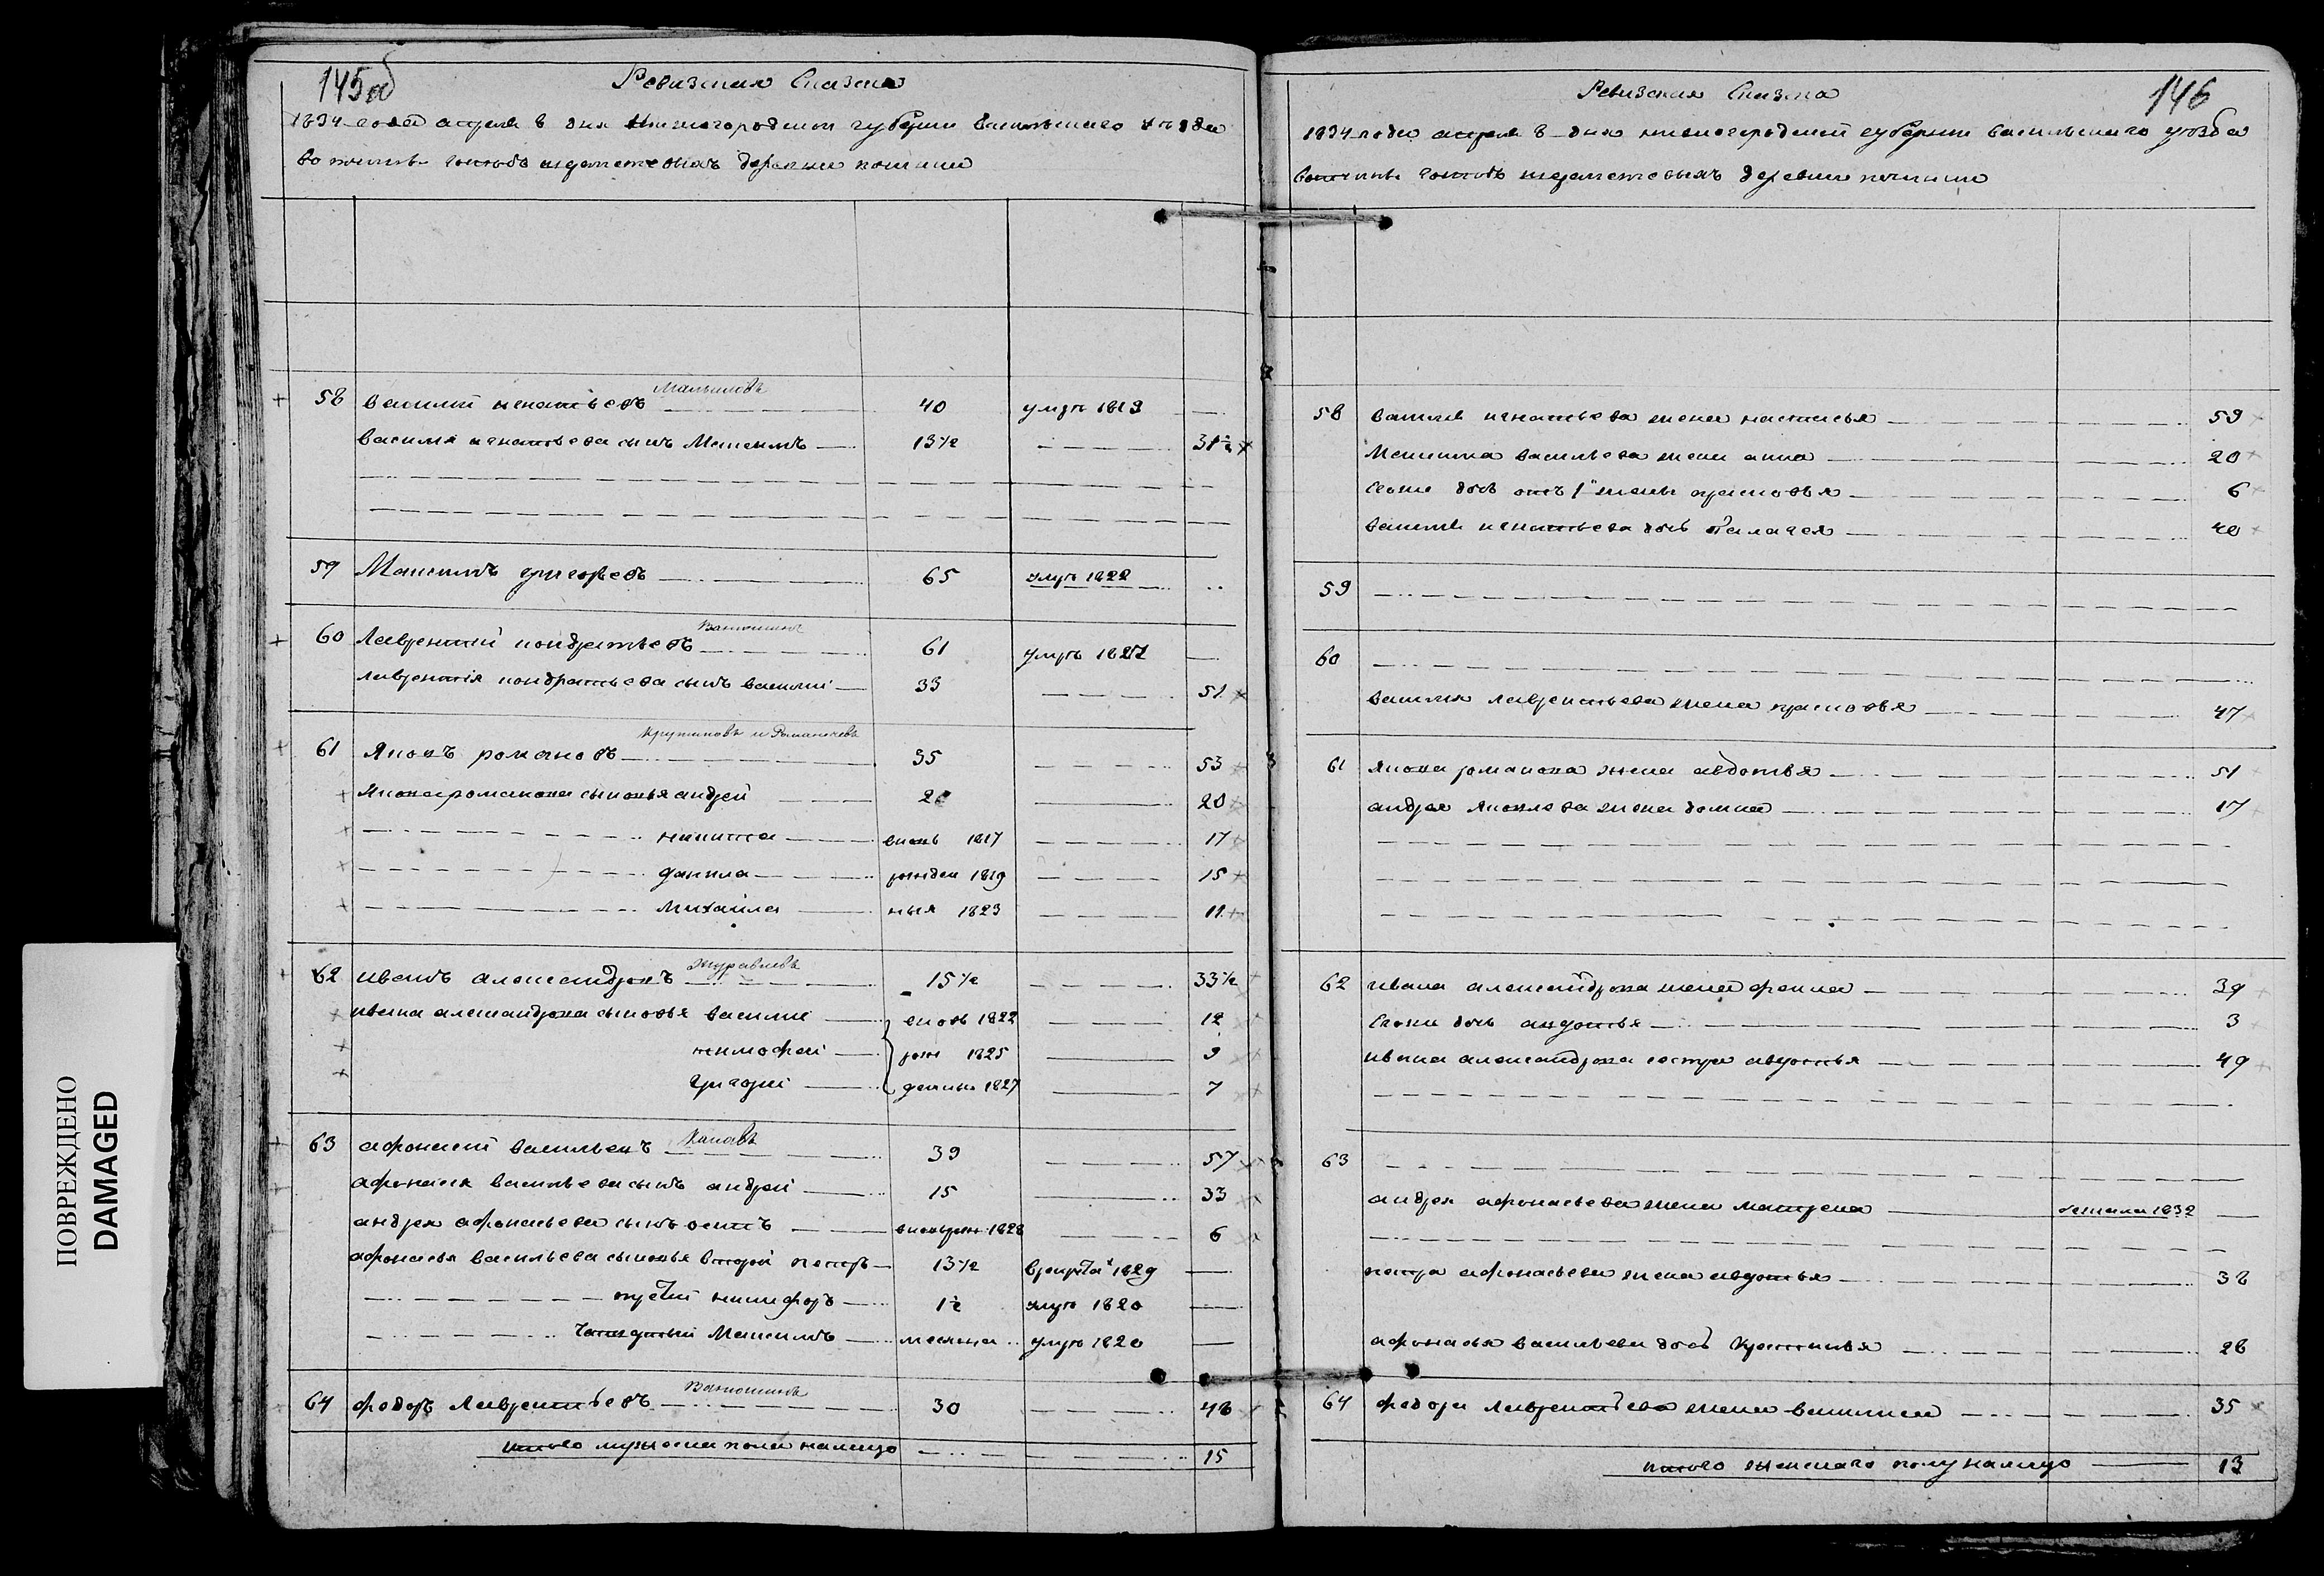 145об
Ревизская Сказка
1834 года апреля 8 дня Нижегородской губернии Васильскаго уезда
вотчины деревни
58 Василий игнатьевъ 40 умръ 1819
Василья игнатьева сынъ Максимъ 13½ 31½
59 Максимъ григорьевъ 65 умръ 1822
60 Лаврентий кондратьевъ Ватюшинъ 61 умръ 1827
лаврентiя кондратьева сынъ василiй 33 51
61 Яковъ романовъ 35 53
Якова романова сыновья андрей 2 20
никита 1817 17
данила рожден 1819 15
Михайла 1823 11
62 иванъ александровъ Журавлевъ 15½ 33½
ивана александрова сыновья василiй вновь 1822 12
тимофей рож 1825 9
григорiй 1827 7
63 афонасий васильевъ 39 57
афонасья васильева сынъ андрей 15 33
андрея афонасьева сынъ осипъ вновь рож 1828 6
афонасья васильева сыновья второй петръ 13½ 1829
третiй никифоръ 1½ умръ 1820
четвертый Максимъ умръ 1820
64 федоръ Лаврентьевъ Ватюшинъ 30 48
итого мужеска пола налицо 15
146
Ревизская Сказка
1834 года апреля 8 дня нижегородской губернии васильскаго уезда
вотчины деревни
58 василья игнатьева жена настасья 59
Максима васильева жена анна 20
Егоже дочь отъ 1й жены прасковья 6
василья игнатьева дочь Палагея 40
59
60
василья лаврентьева жена прасковья 47
61 якова романова жена авдотья 51
андрея яковлева жена домна 17
62 ивана александрова жена фекла 39
Егоже дочь авдотья 3
ивана александрова сестра авдотья 49
63
андрея афонасьева жена матрена 1832
петра афонасьева жена авдотья 38
афонасья васильева дочь 28
64 федора лаврентьева жена василиса 35
итого женскаго полу налицо 13
ПОВРЕЖДЕНО
DAMAGED